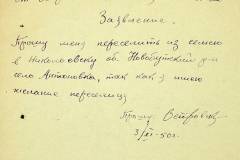 Заявление.
Прошу меня переселить из семею
в Николаевску об. Новобугский р-н
село Антоновка, так как я имею
желание переселиц
Прошу
3/XI-50г.